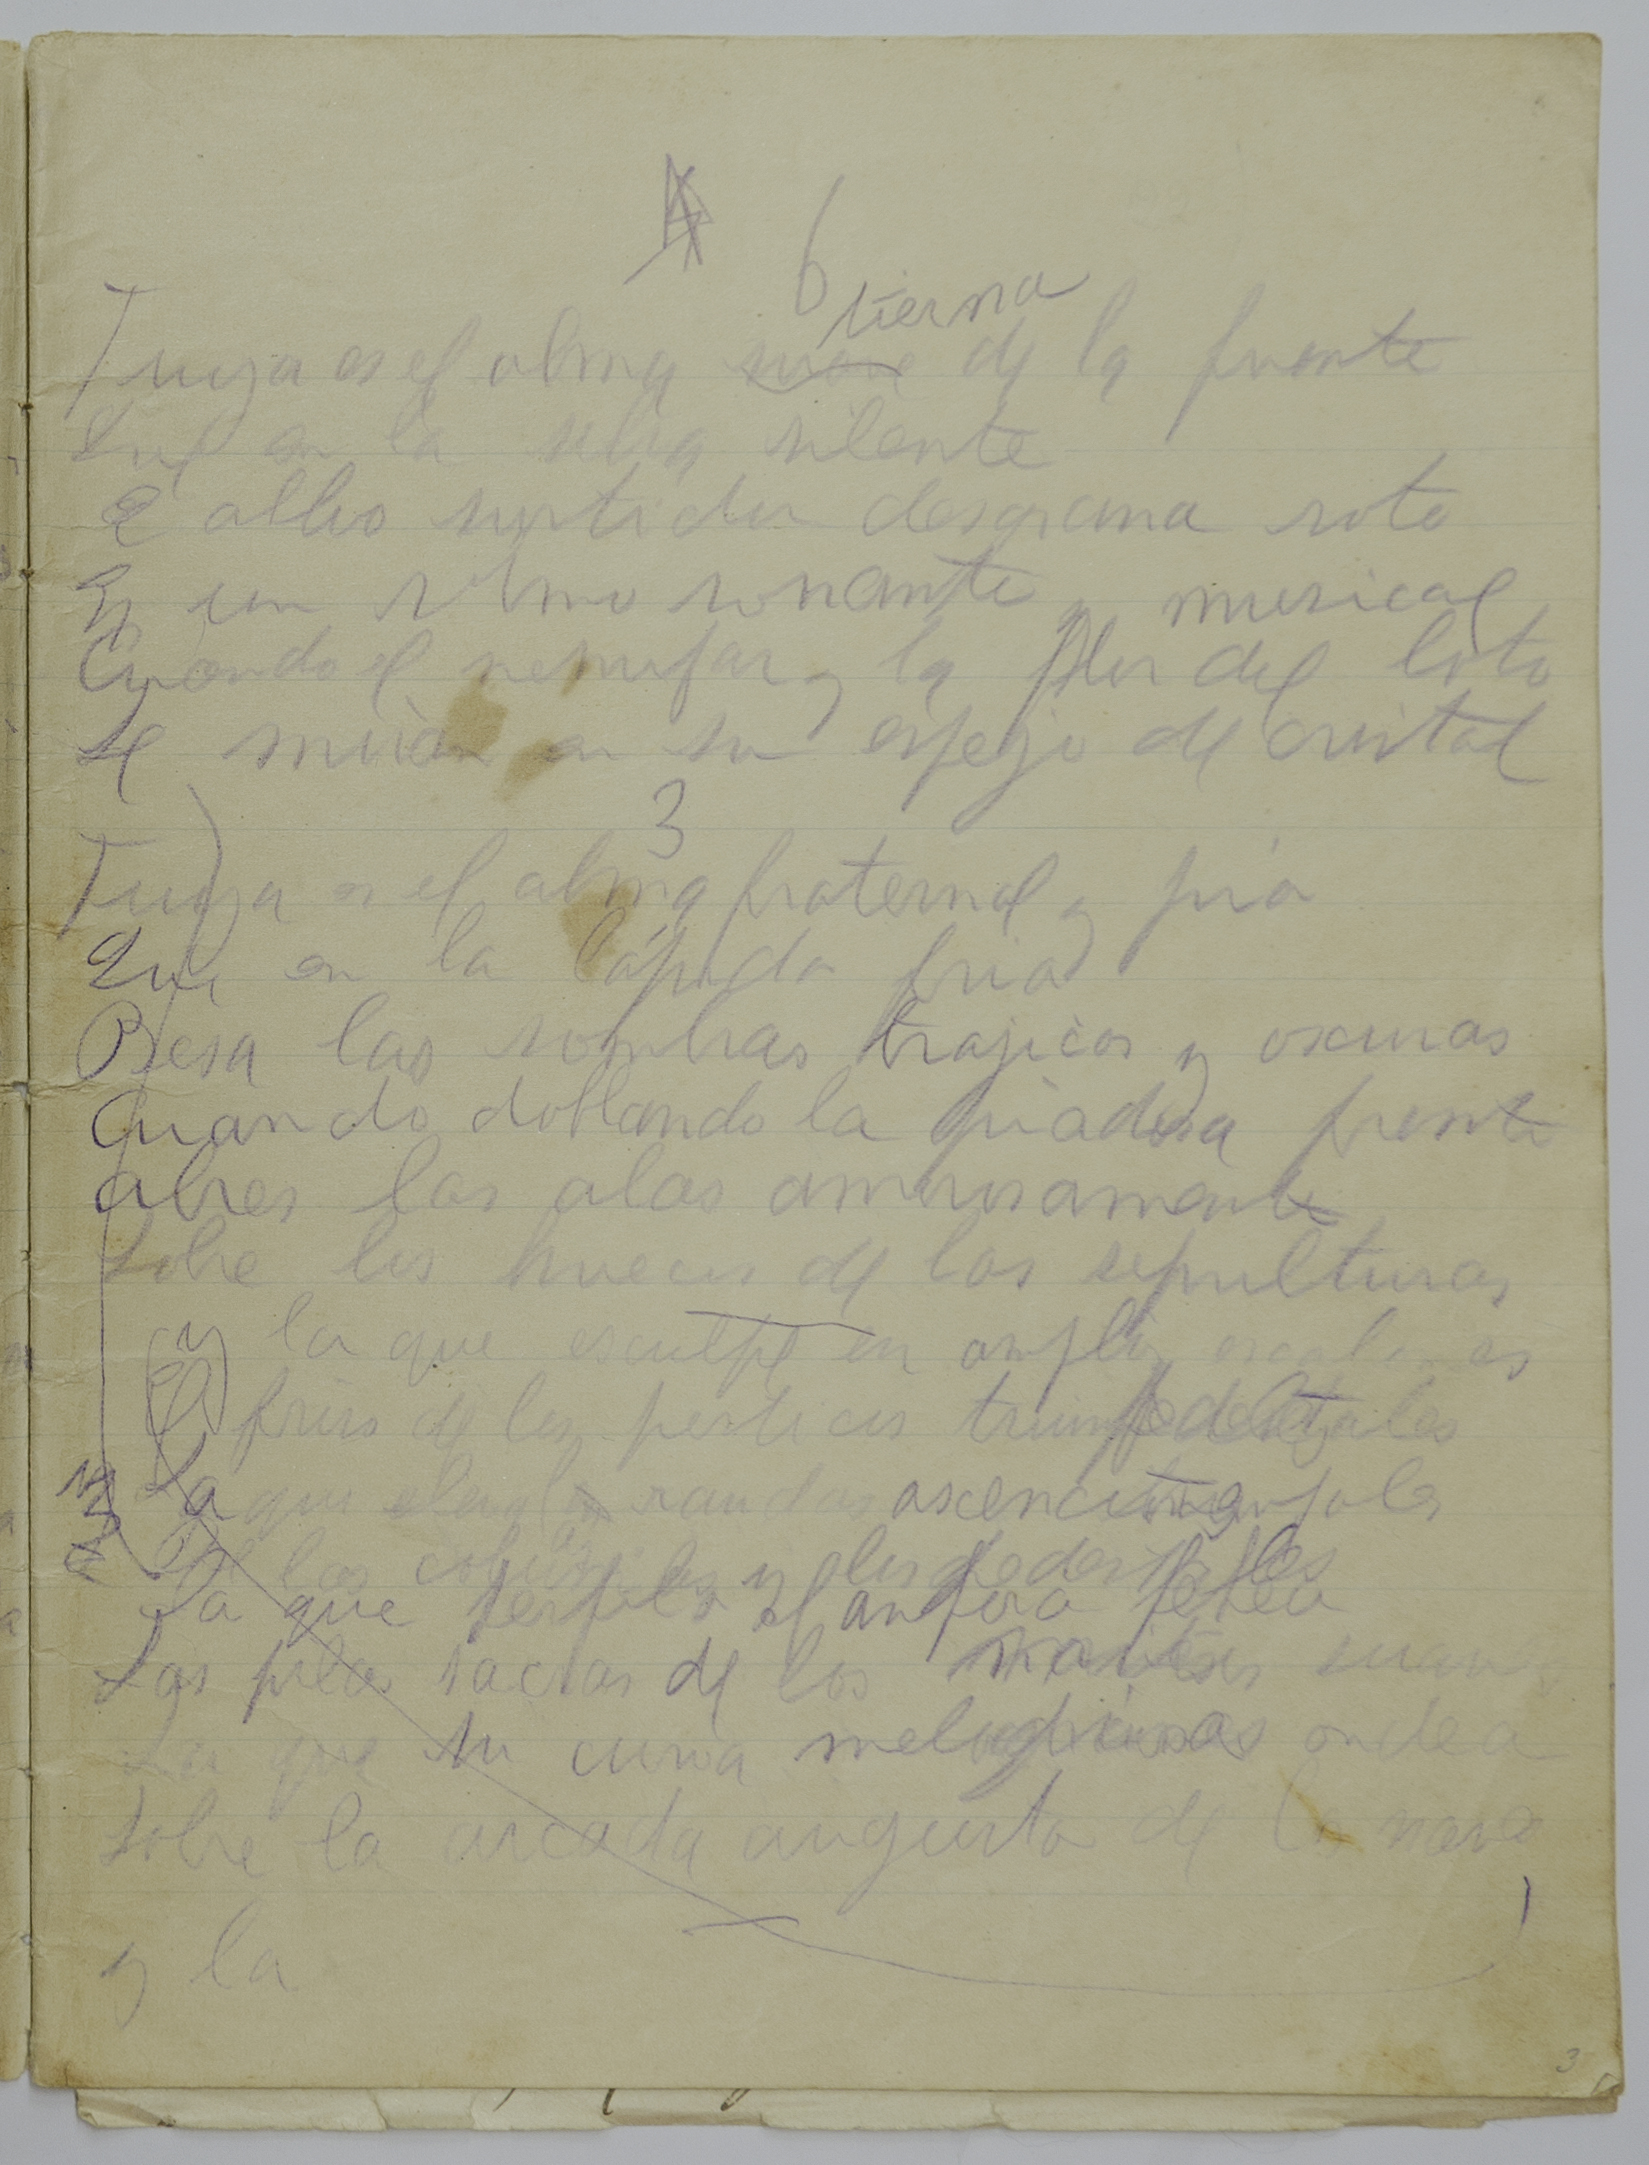 6
tierna
Tuya es el alma suave de la fuente
Que en la selva silente
El albo surtidor desgrana roto
En un ritmo sonante y musical
Cuando el nenufar y la flor del loto
Se miran en su espejo de cristal
3
Tuya es el alma fraternal y pia
Que en la lápida fria
Besa las sombras trajicas y oscuras
Cuando doblando la piadosa frente
abres las alas amorosamente
Sobre los huecos de las sepulturas
y la que esculpe en
El friso de los porticos
La que las raudas ascenciones
De las y los pedestales
La que perfila el anfora febea
Las pilas sacras de los suaves
La que su curva melodiosa ondea
Sobre la arcada augusta de la nave
y la
3